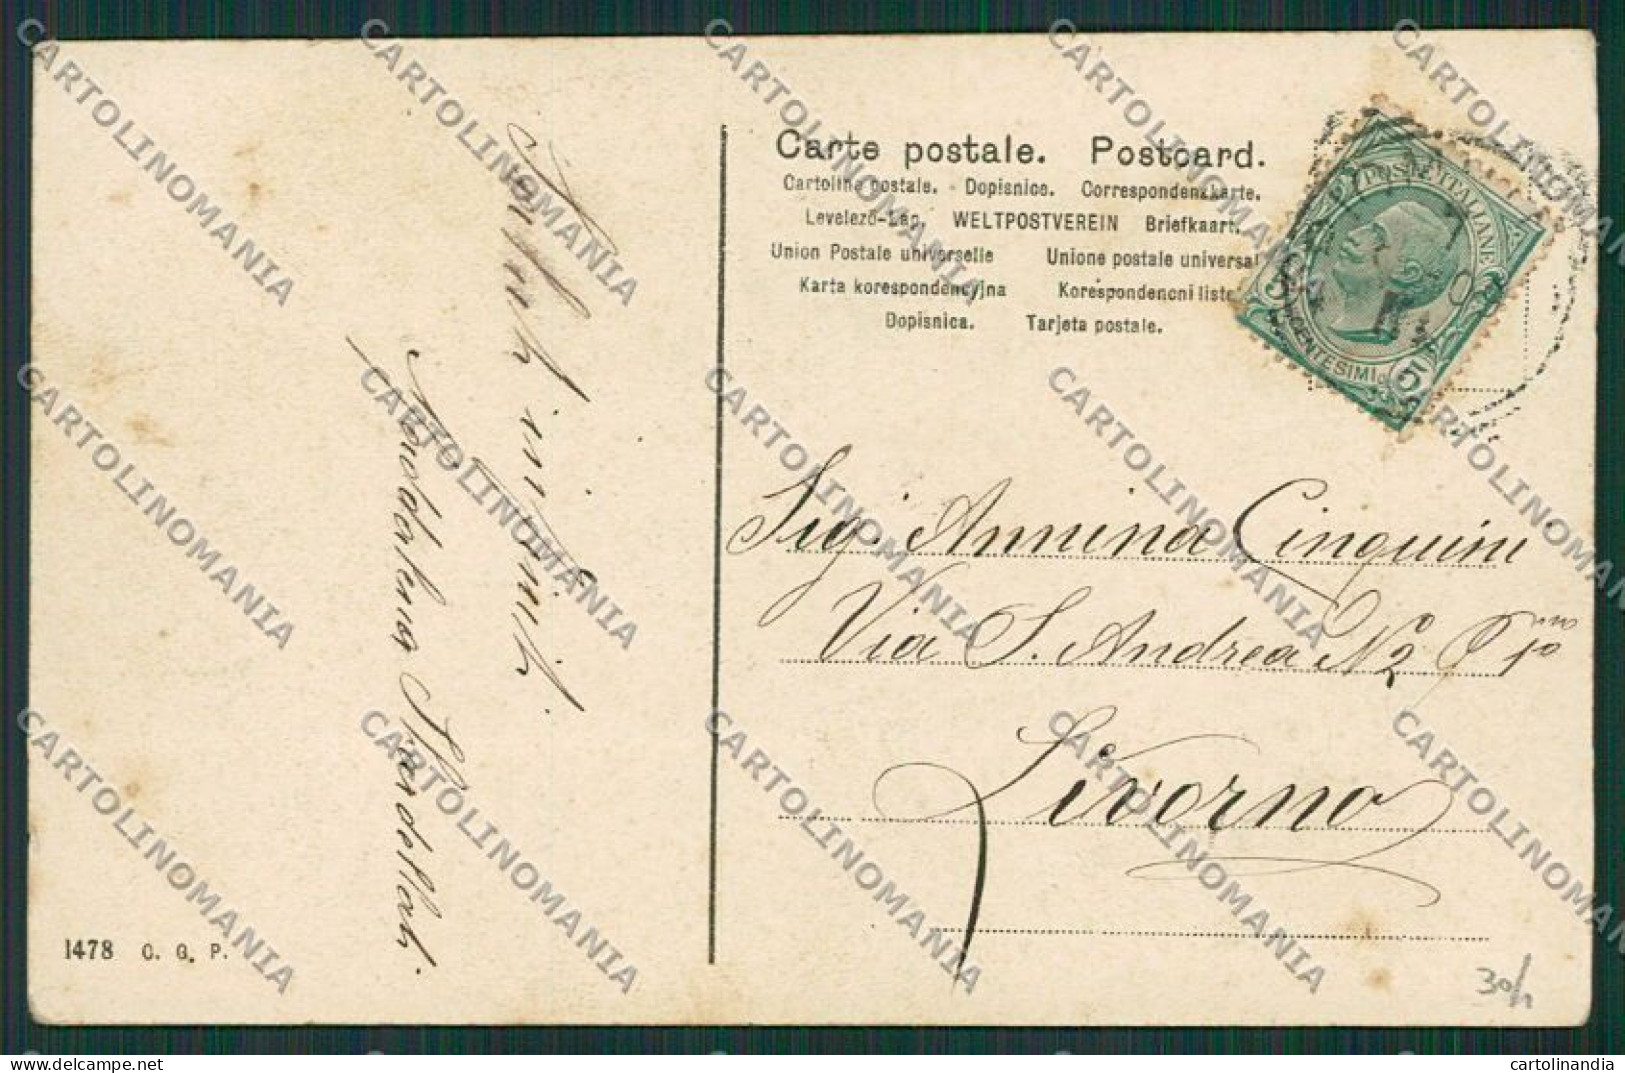 Carte postale. Postcard.
Cartolina postale. Dopisnice. Correspondenzkarte.
Levelező-Lap. WELTPOSTVEREIN Briefkaart.
Union Postale universelle Unione postale universal
Karta korespondencyjna Korespondencni liste
Dopisnica. Tarjeta postale.
POSTE ITALIANE
CENTESIMI
5 5
Sig. Annina Cinquini
Via S. Andrea N 2
Livorno
infiniti
Maddalena
1478 C. G. P.
30/1
CARTOLINOMANIA
cartolinandia